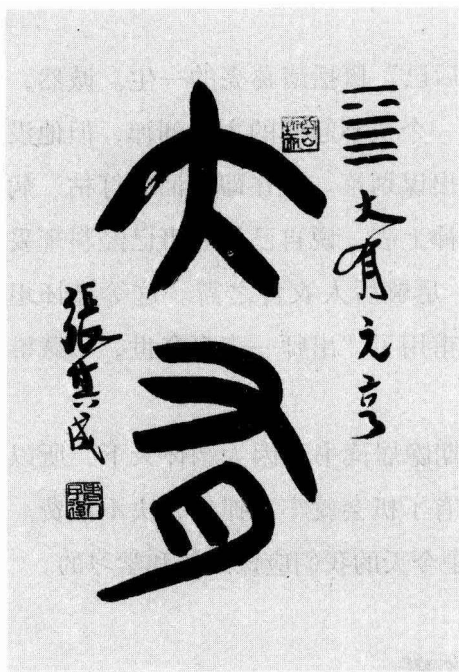 大有元亨
大有
張其成